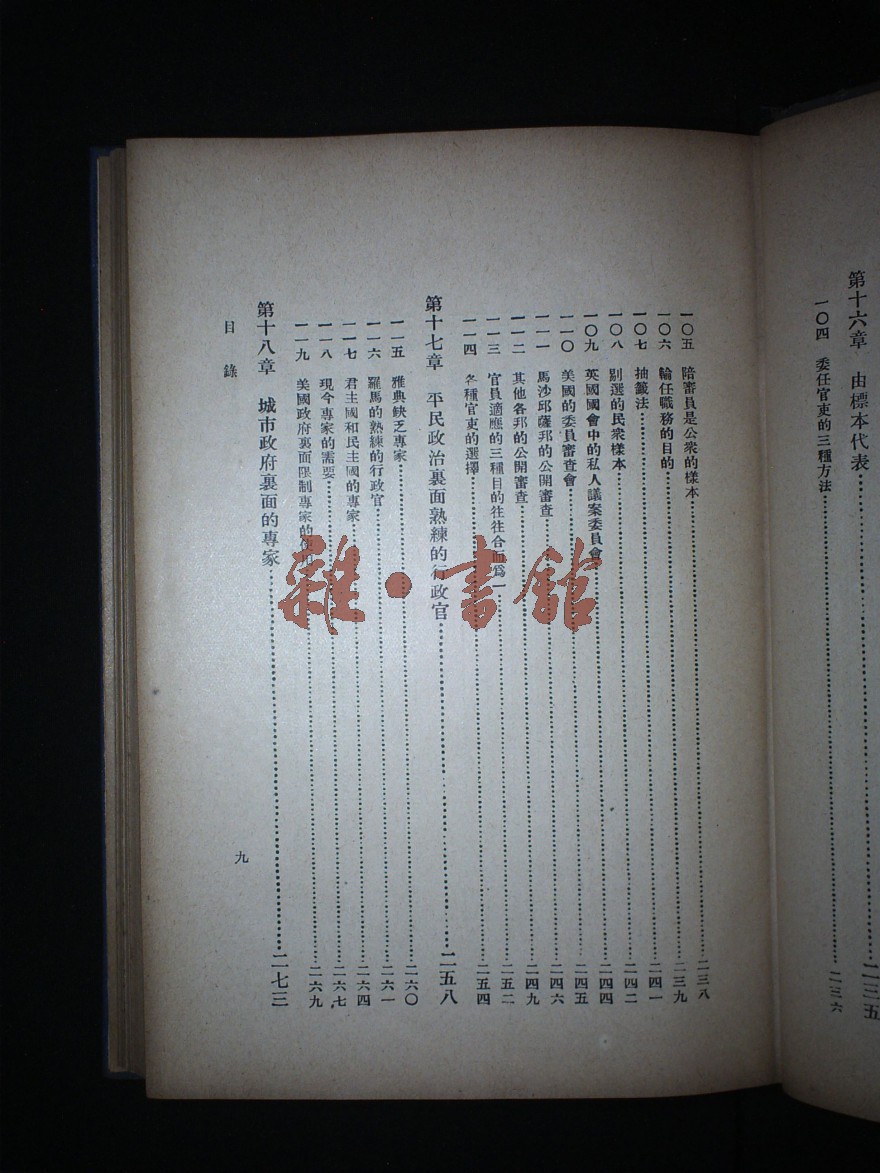 第十六章 由標本代表……二三五
一〇四 委任官吏的三種方法……二三六
一〇五 陪審員是公衆的樣本……二三八
一〇六 輪任職務的目的……二三九
一〇七 抽籤法……二四一
一〇八 剔選的民衆樣本……二四二
一〇九 英國國會中的私人議案委員會……二四四
一一〇 美國的委員審查會……二四五
一一一 馬沙邱薩邦的公開審查……二四六
一一二 其他各邦的公開審查……二四九
一一三 官員適應的三種目的往往合而爲一……二五二
一一四 各種官吏的選擇……二五四
第十七章 平民政治裏面熟練的行政官……二五八
一一五 雅典缺乏專家……二六〇
一一六 羅馬的熟練的行政官……二六一
一一七 君主國和民主國的專家……二六四
一一八 現今專家的需要……二六七
一一九 美國政府裏面限制專家的使用……二六九
第十八章 城市政府裏面的專家……二七三
目錄
九
雜·書館